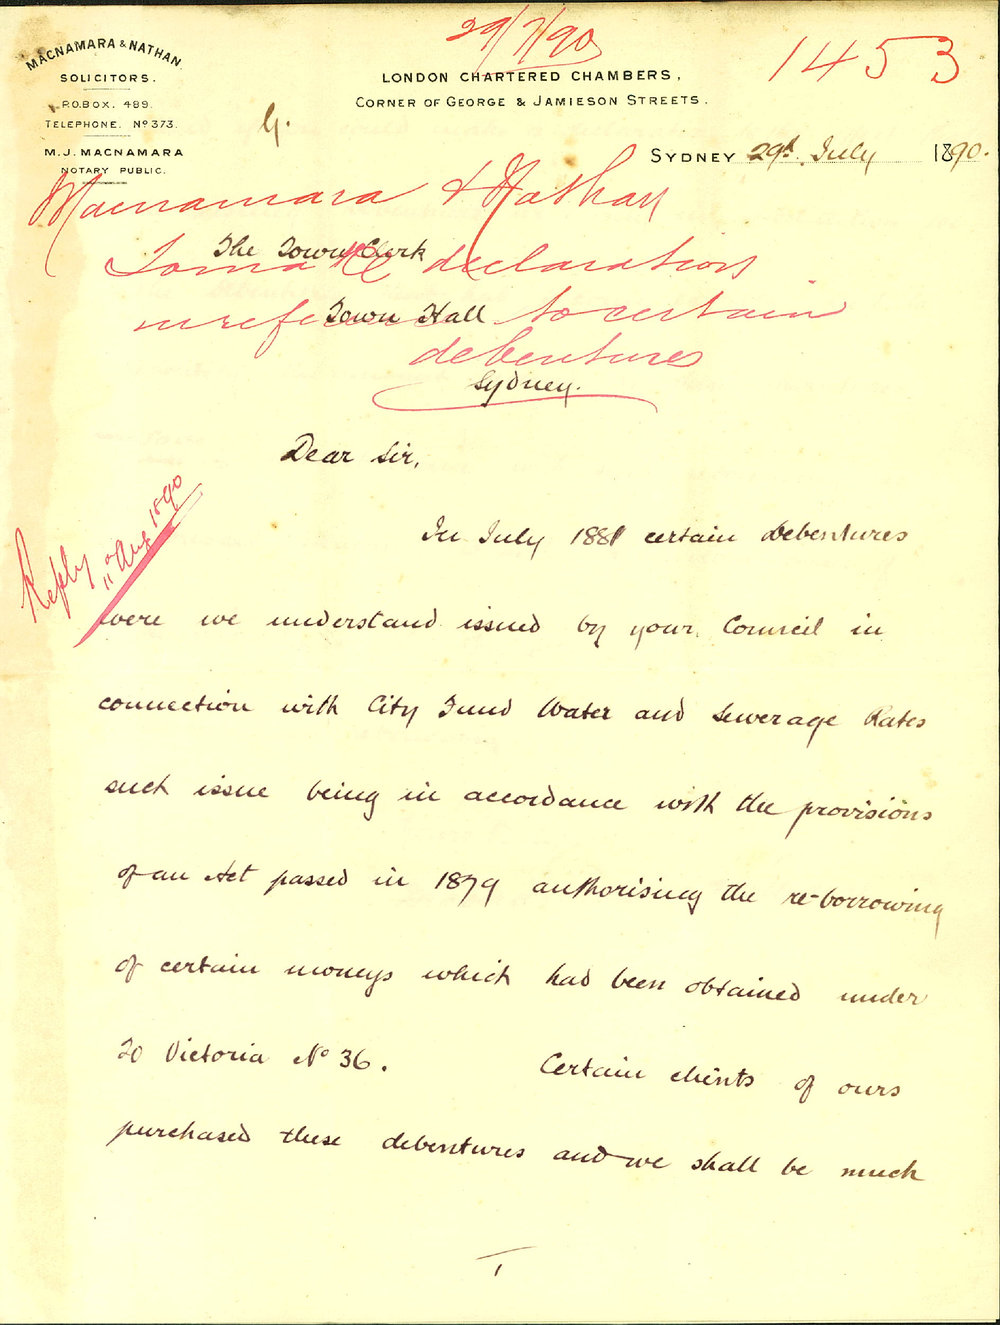 29/7/90
1453
MACNAMARA & NATHAN
SOLICITORS.
P.O. BOX. 489.
TELEPHONE. No 373.
M. J. MACNAMARA
NOTARY PUBLIC.
LONDON CHARTERED CHAMBERS,
CORNER OF GEORGE & JAMIESON STREETS.
SYDNEY 29th July 1890.
Macnamara & Nathan
The Town Clerk
declaration
Town Hall
to certain
debentures
Sydney.
Dear Sir,
Reply 11 Aug 1890
In July 1881 certain Debentures
were we understand issued by your Council in
connection with City Fund Water and Sewerage Rates
such issue being in accordance with the provisions
of an Act passed in 1879 authorising the re-borrowing
of certain moneys which had been obtained under
20 Victoria No 36. Certain clients of ours
purchased these debentures and we shall be much
1